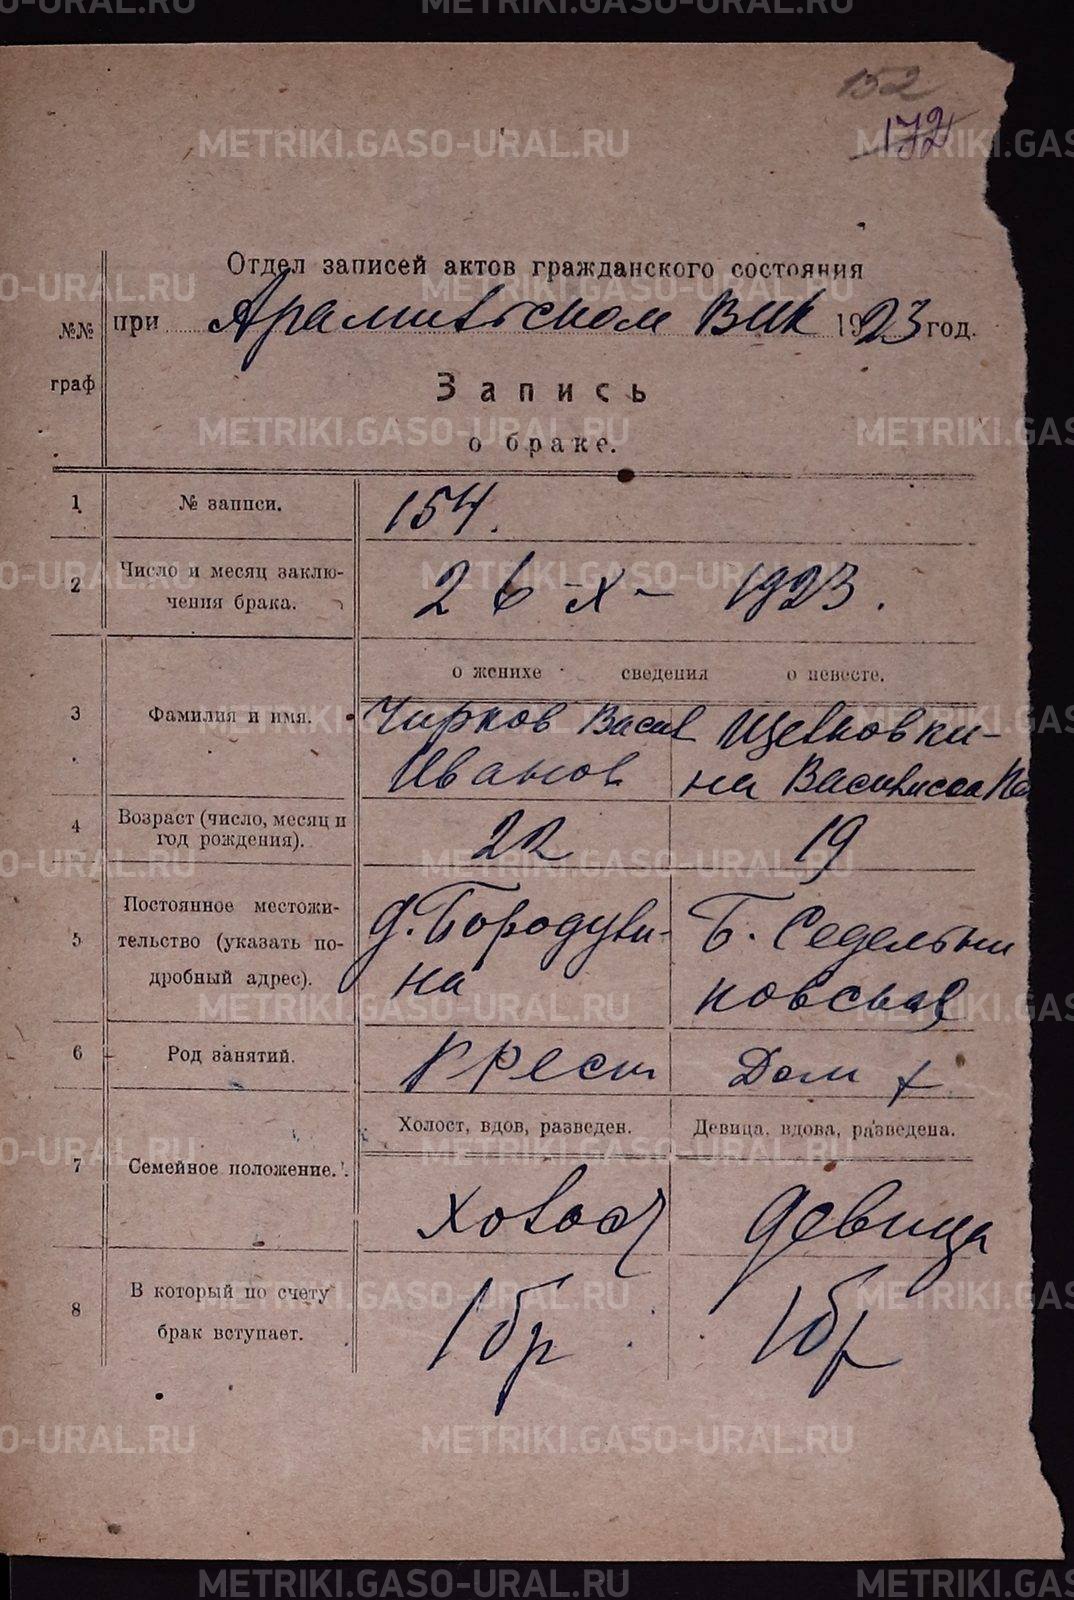 152
172
Отдел записей актов гражданского состояния
№№ граф
при Арамильском Вик 1923 год.
Запись
о браке.
1 № записи. 154.
2 Число и месяц заключения брака. 26-X- 1923.
о женихе сведения о невесте.
3 Фамилия и имя.
Чирков Васил Иванов
Щелковкина Василисса
4 Возраст (число, месяц и год рождения). 22 19
5 Постоянное местожительство (указать подробный адрес).
д. Бородулина
Б. Седельниковская
6 Род занятий. Крест Дом х
Холост, вдов, разведен. Девица, вдова, разведена.
7 Семейное положение. холост девица
8 В который по счету брак вступает. 1 бр 1 бр
METRIKI.GASO-URAL.RU